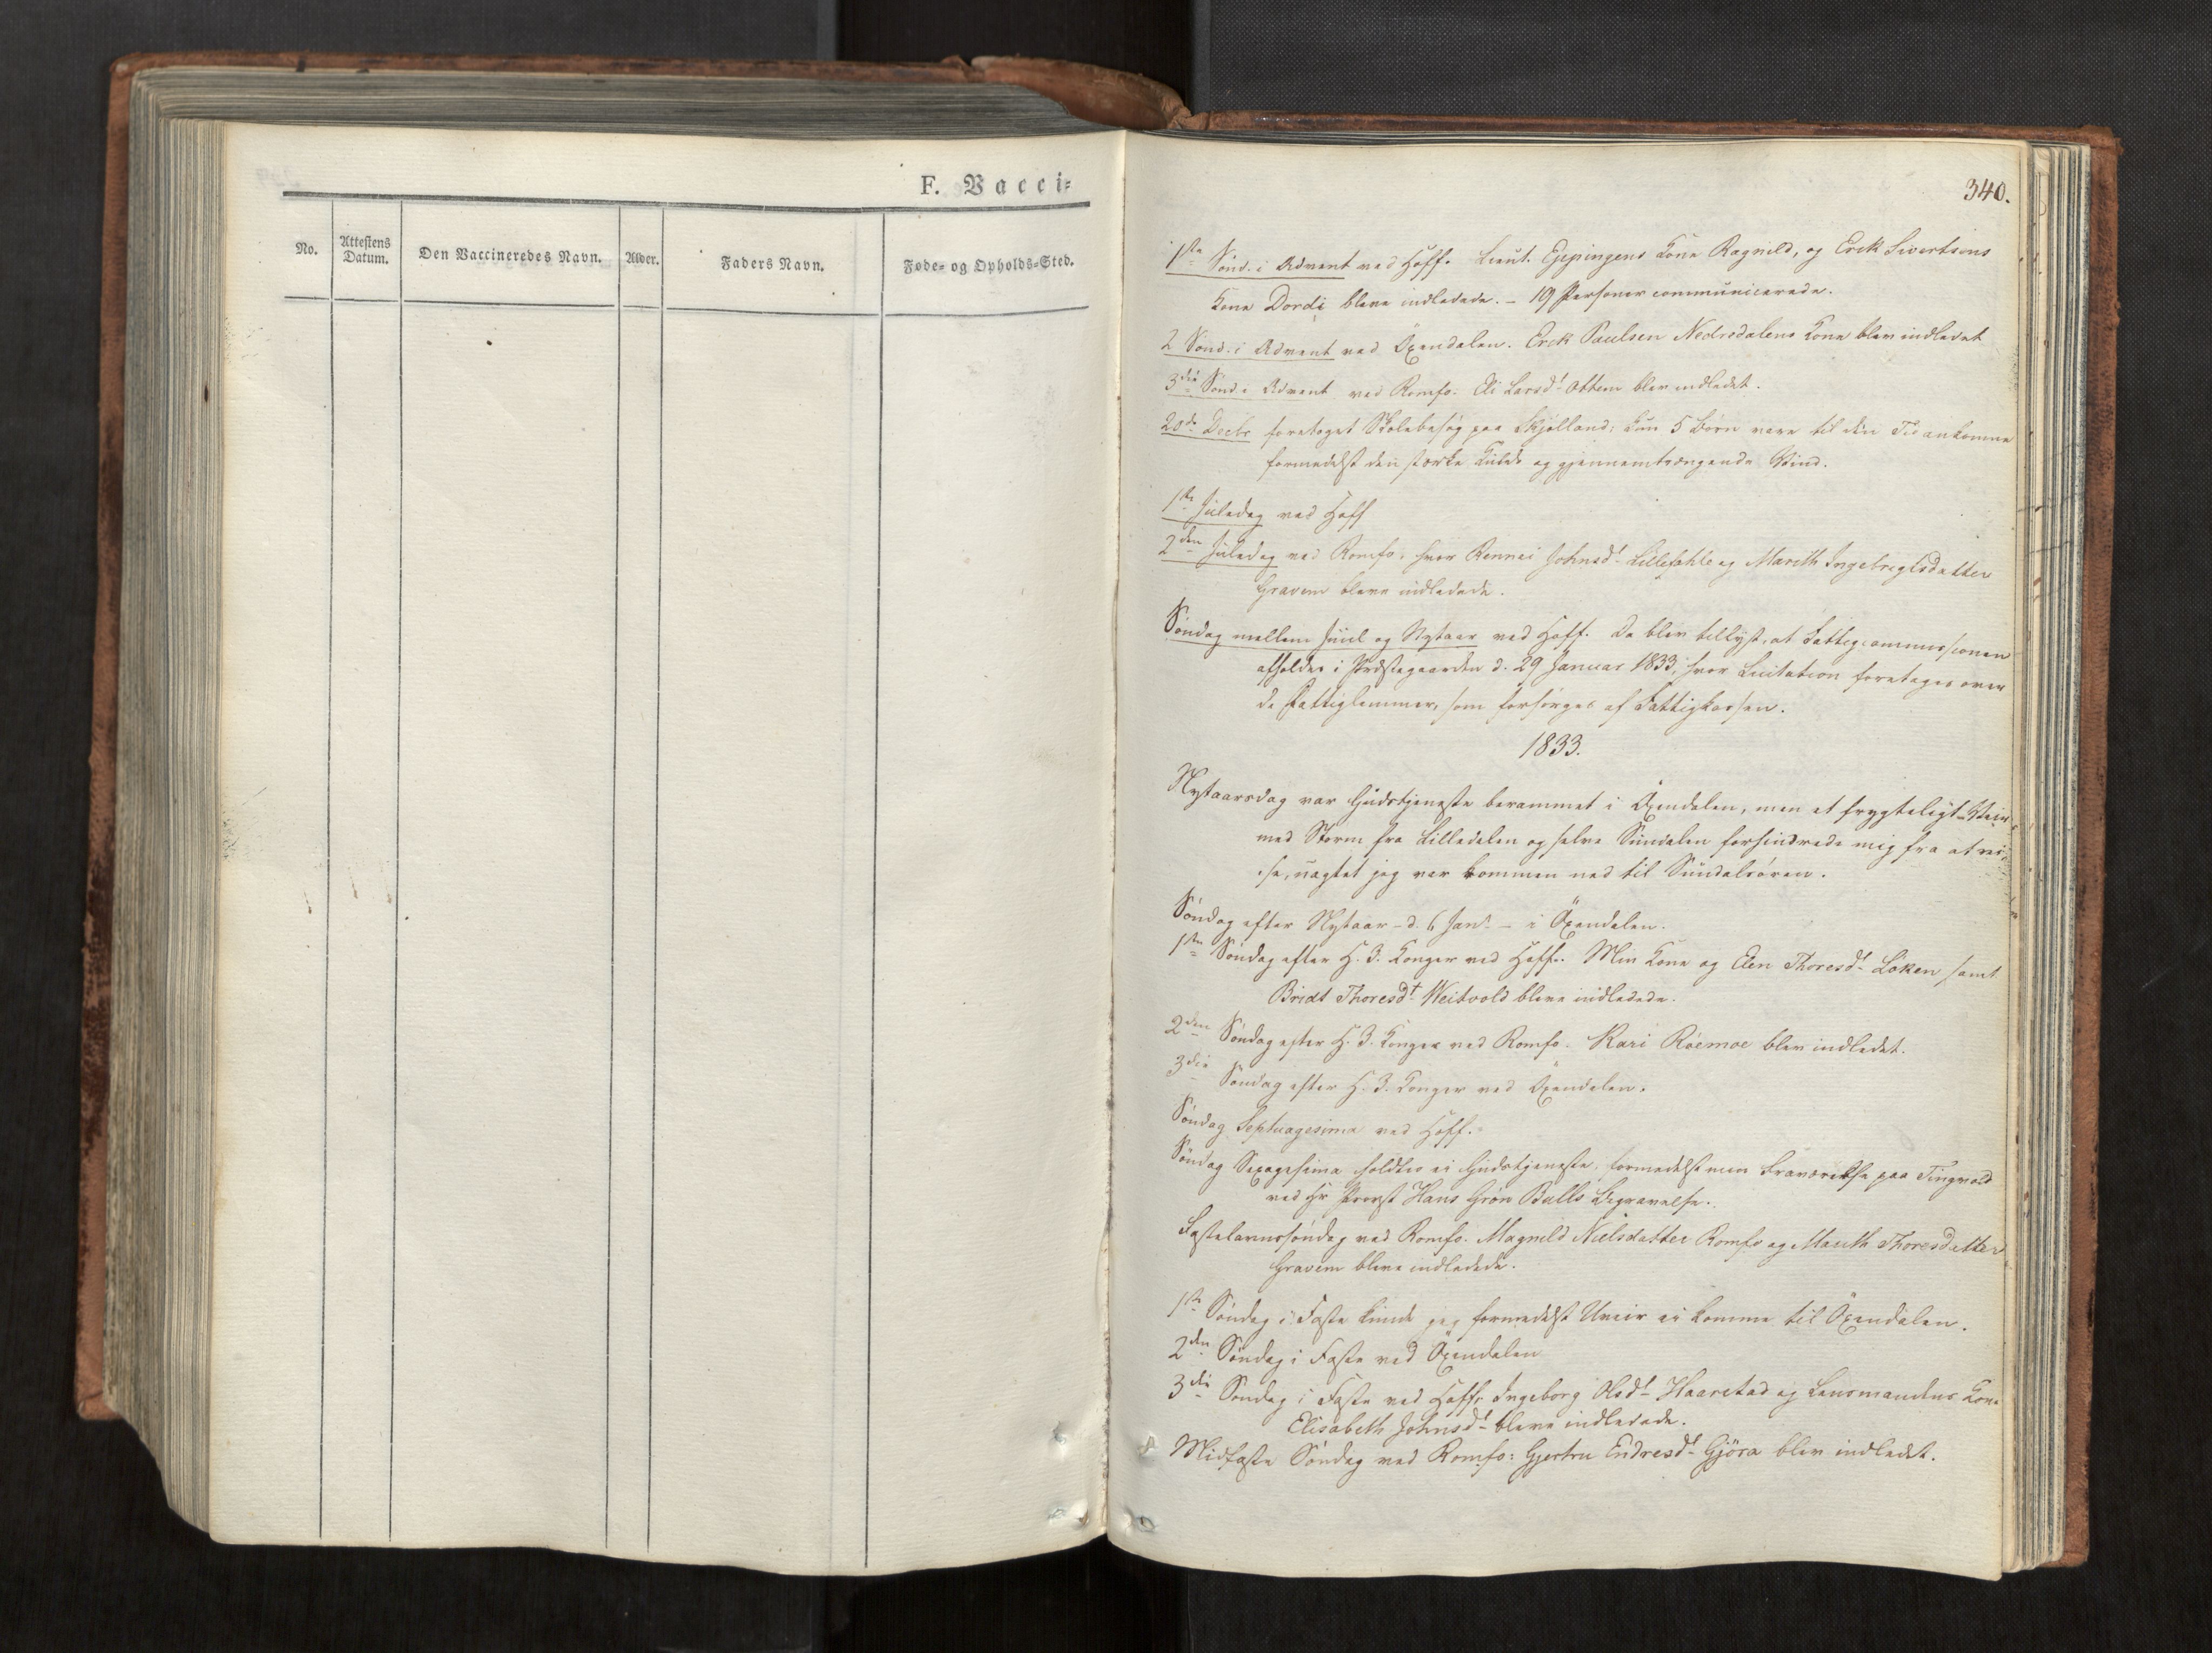 F. Vacci=
No.
Attestens Datum.
Den Vaccineredes Navn.
Alder.
Faders Navn.
Føde= og Opholds=Sted.
340.
1ste Sønd. i Advent ved Hoff. Lieut. Eppingens Kone Ragnild, og Erik Sivertsens
Kone Dordi bleve indledede. – 19 Personer communicerede.
2 Sønd. i Advent ved Öxendalen. Erik Paulsen Nedredalens Kone blev indledet
3die Sønd. i Advent ved Romfo. Eli Larsdt. Ottem blev indledet.
20de Decbr foretoget Skolebesøg paa Skjølland; kun 5 Børn vare til den Tid ankomne
formedelst den stærke Kulde og gjennemtrængende Vind.
1ste Juledag ved Hoff
2den Juledag ved Romfo, hvor Rennei Johnsdt. Lillefahle og Marith Ingebrigtsdatter
Gravem bleve indledede.
Søndag mellem Juul og Nytaar ved Hoff. Da blev tillyst, at Fattigcommissionen
afholdes i Præstegaarden d. 29 Januar 1833, hvor Licitation foretages over
de Fattiglemmer, som forsørges af Fattigkassen.
1833.
Nytaarsdag var Gudstjeneste berammet i Öxendalen, men et frygteligt Veir
med Storm fra Lilledalen og selve Sundalen forhindrede mig fra at rei=
se, uagtet jeg var kommen ned til Sundalsøren.
Søndag efter Nytaar – d. 6 Jan. – i Öxendalen.
1ste Søndag efter H. 3. Konger ved Hoff. Min Kone og Elen Thoresdt. Løken samt
Bridt Thoresdt. Weitvold bleve indledede.
2den Søndag efter H. 3. Konger ved Romfo. Kari Röemoe blev indledet.
3die Søndag efter H. 3. Konger ved Öxendalen.
Søndag Septuagesima ved Hoff.
Søndag Sexagesima holdtes ei Gudstjeneste, formedelst min Fraværelse paa Tingvold
ved Hr Provst Hans Grøn Bulls Begravelse.
Fastelavnssøndag ved Romfo. Magnild Nielsdatter Romfo og Marith Thoresdatter
Gravem bleve indledede.
1ste Søndag i Faste kunde jeg formedelst Uveir ei komme til Öxendalen.
2den Søndag i Faste ved Öxendalen
3die Søndag i Faste ved Hoff. Ingeborg Olsdt. Haarstad og Lensmandens Kone
Elisabeth Johnsdt. bleve indledede.
Midfaste Søndag ved Romfo: Gjertru Endresdt. Gjöra blev indledet.